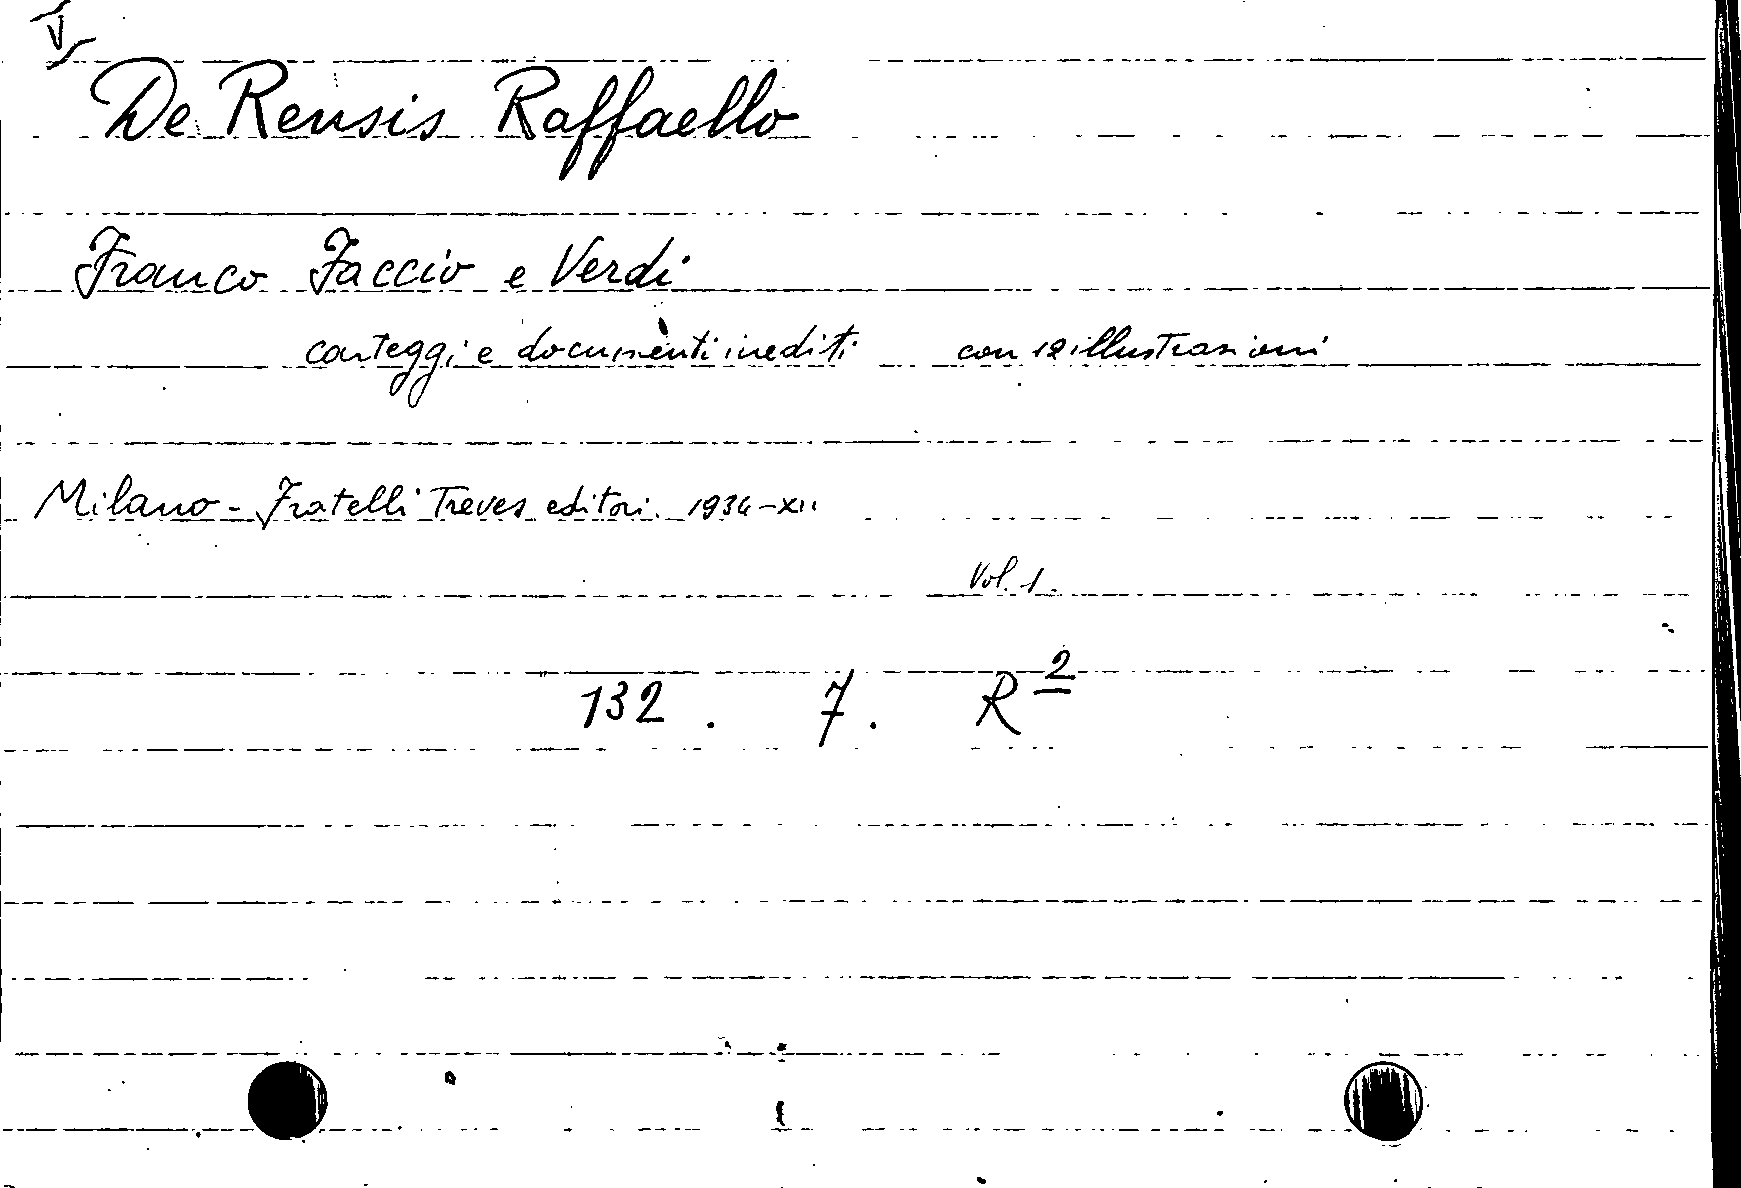 V
De Rensis Raffaello
Franco Faccio e Verdi
carteggi e documenti inediti con 12 illustrazioni
Milano - Fratelli Treves editori. 1934-XII
Vol. 1.
132 . 7. R 2